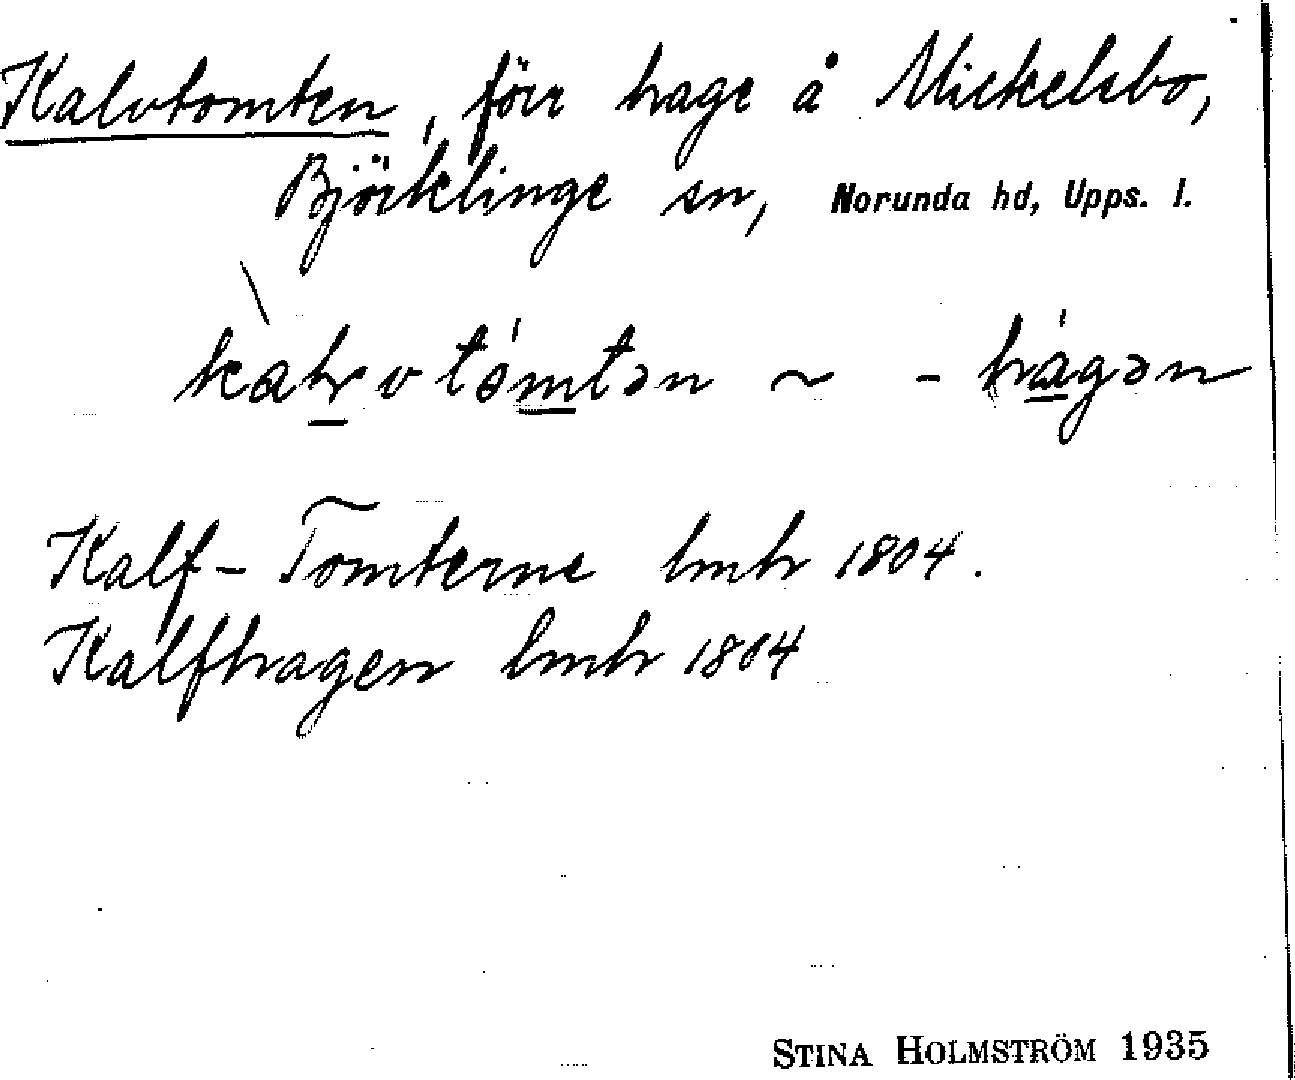 Kalvtomten, förr hage å Mickelsbo,
Björklinge sn, Norunda hd, Upps. l.
~ -hágən
Kalf-Tomterne lmh 1804.
Kalfhagen lmh 1804
STINA HOLMSTRÖM 1935